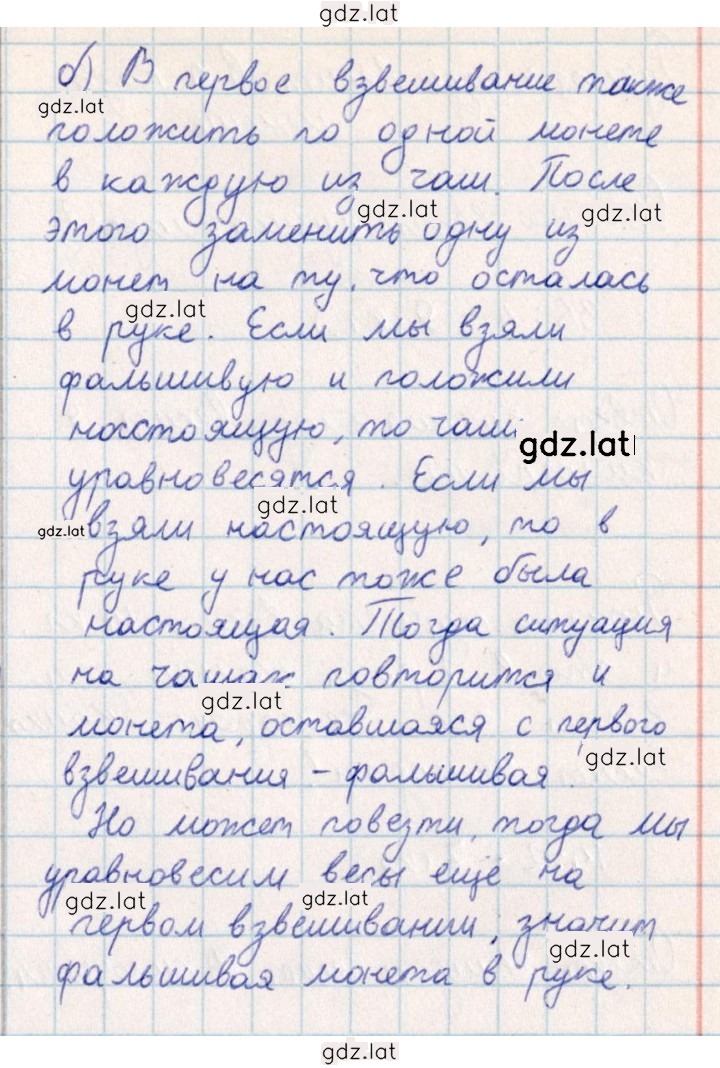 gdz.lat
б) В первое взвешивание также
gdz.lat
положить по одной монете
в каждую из чаш. После
gdz.lat gdz.lat
этого заменить одну из
монет на ту, что осталась
gdz.lat
в руке. Если мы взяли
фальшивую и положили
настоящую, то чаши
gdz.lat
уравновесятся. Если мы
gdz.lat
gdz.lat взяли настоящую, то в
руке у нас тоже была
настоящая. Тогда ситуация
на чашах повторится и
gdz.lat
монета, оставшаяся с первого
gdz.lat
взвешивания – фальшивая.
Но может повезти, тогда мы
уравновесим весы ещё на
gdz.lat gdz.lat
первом взвешивании, значит
gdz.lat
фальшивая монета в руке.
gdz.lat